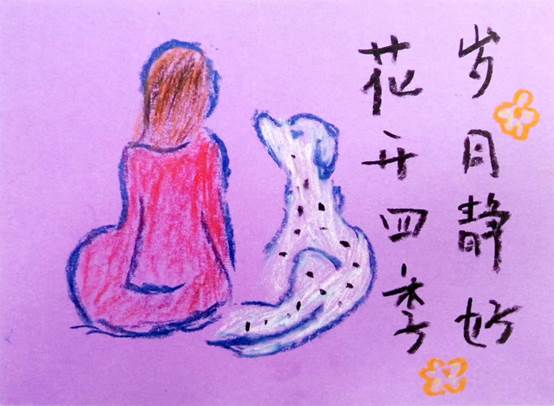 岁月静好
花开四季